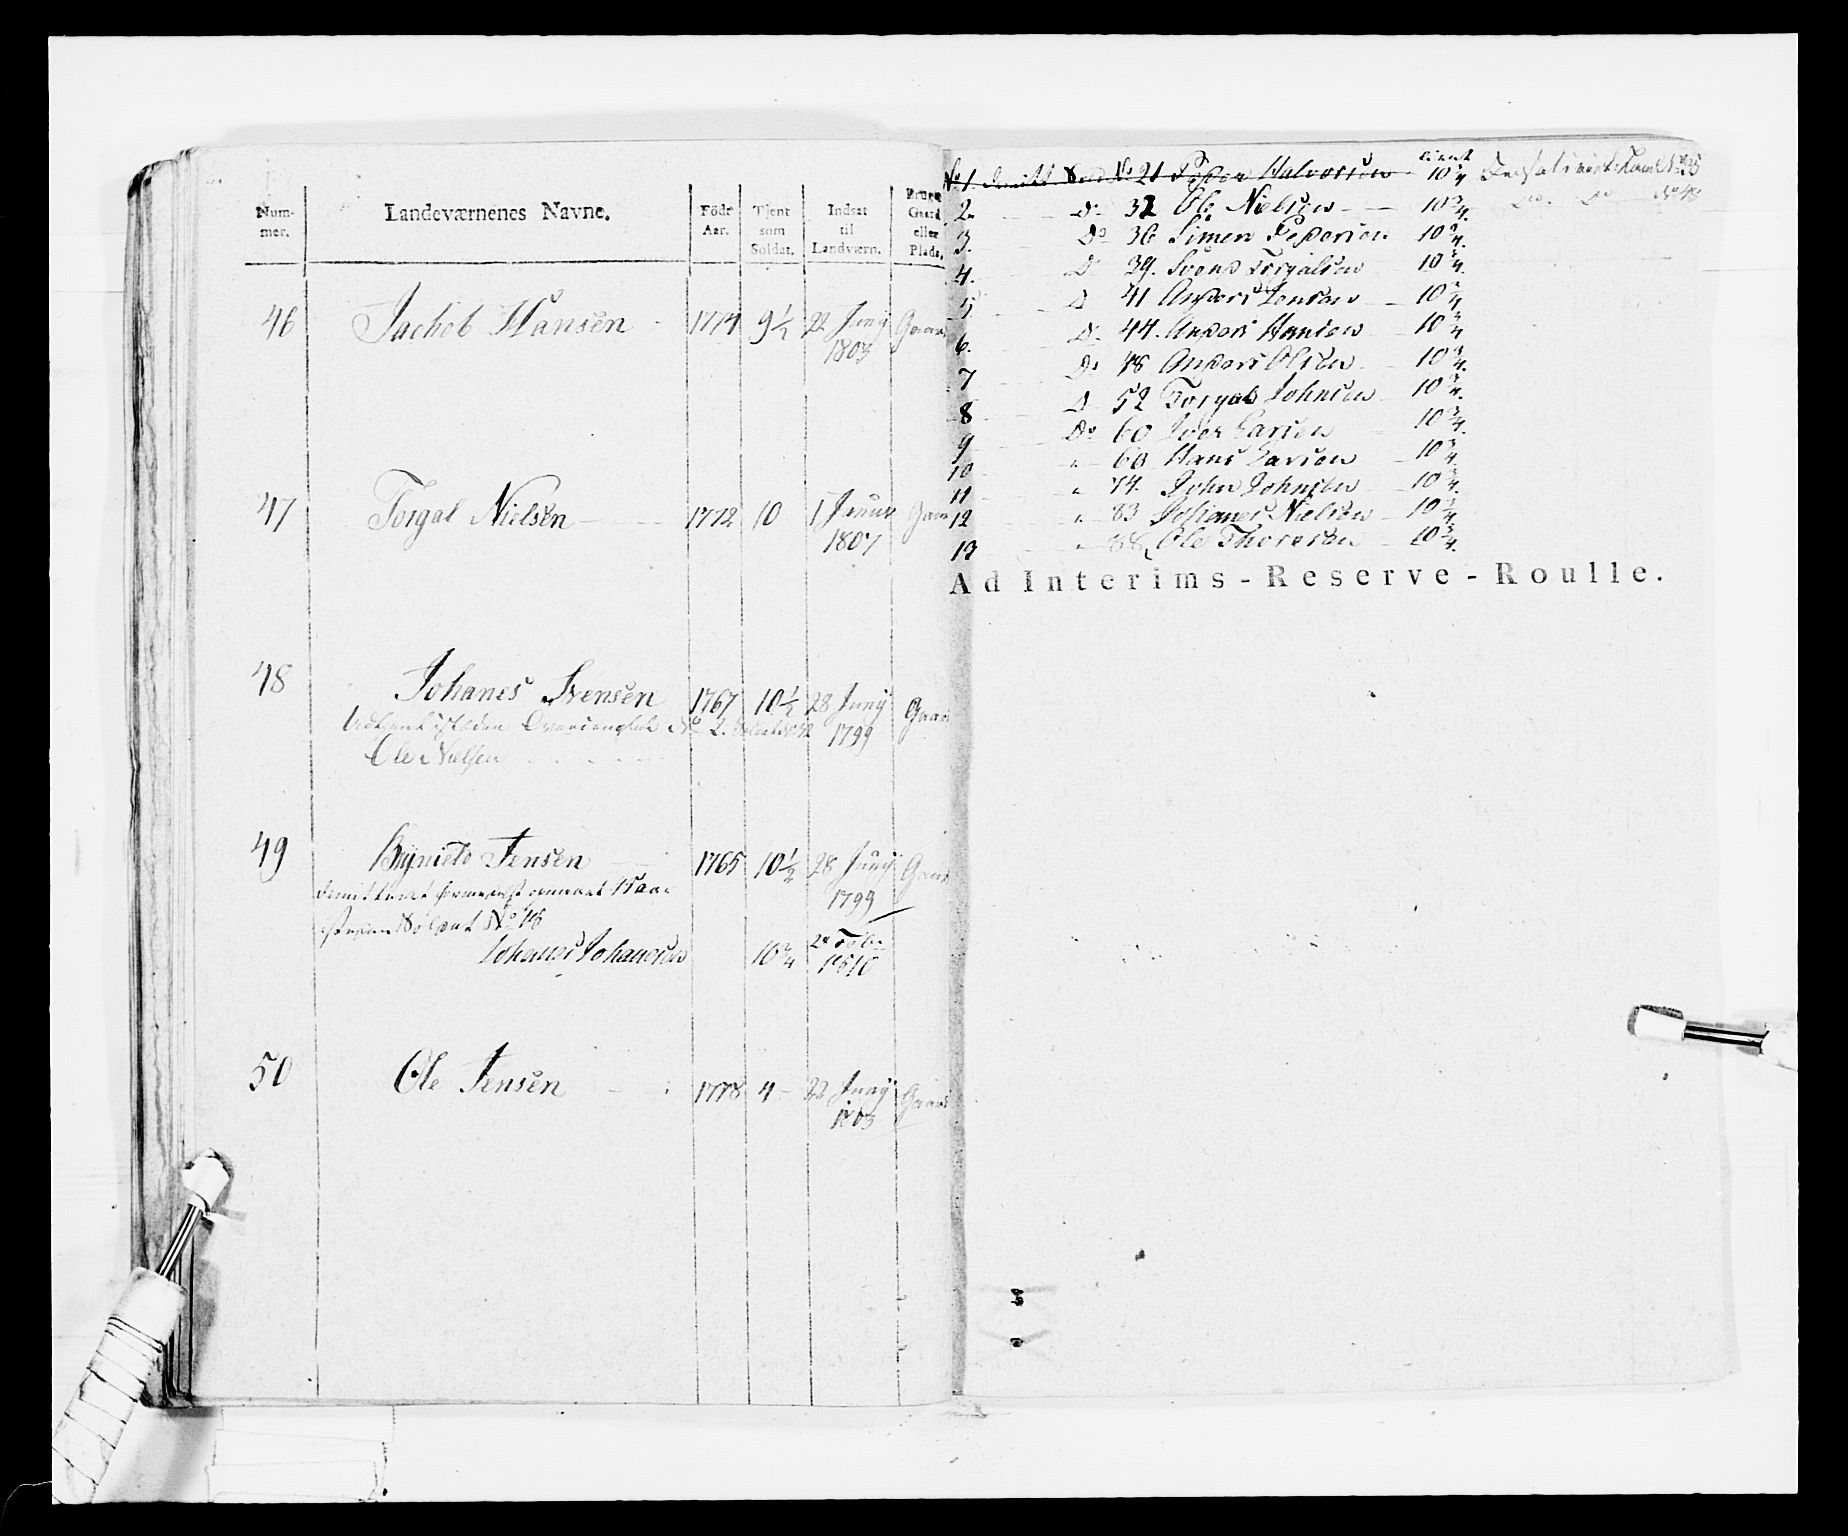 Num-
mer.
Landeværnenes Navne.
Födt
Aar.
Tjent
som
Soldat.
Indsat
til
Landværn.
Bruger
Gaard
eller
Plads.
46 Jachob Hansen 1774 9 1/2 22 Junÿ Gaard
1803
47 Torgal Nielsen 1772 10 1 Gaar
1807
48 Johanes Svensen 1767 10 1/2 28 Junÿ Gaar
No 2. 1799
Ole Nielsen
49 Jensen 1765 10 1/2 28 Junÿ Gaar
1799
No 18
Johanes Johanesen 10 3/4 1810
50 Ole Jensen 1778 4 22 Junÿ Gaard
1803
tient
No 1 No 21 Peder Halvorsen 10 3/4 No 35
2. Do 32 Ole Nielsen 10 3/4.
3. Do 36 Simen Pedersen 10 3/4.
4. Do 39. Svend Torgalsen 10 3/4.
5 Do 41 Anders Jensen 10 3/4
6. Do 44. Anders Hansen 10 3/4
7 Do 48 Anders Olsen 10 3/4.
8 Do 52 Torgal Johnsen 10 3/4.
9 Do 60 Iver Larsen 10 3/4.
10 " 60 Hans Larsen 10 3/4.
11 " 74. John Johnsen 10 3/4.
12 " 83 Johannes Nielsen 10 3/4
13 " 88 Ole Thoresen 10 3/4.
Ad Interims-Reserve-Roulle.